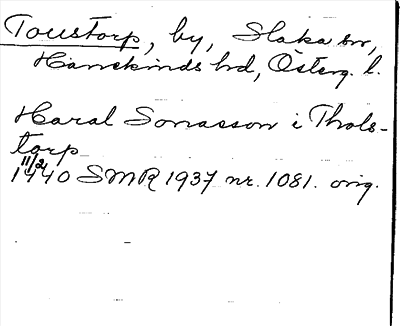 Toustorp, by, Slaka sn,
Hanekinds hd, Österg. l.
Haral Sonasson i Thols-
torp
11/2
1440 SMR 1937 nr. 1081. orig.